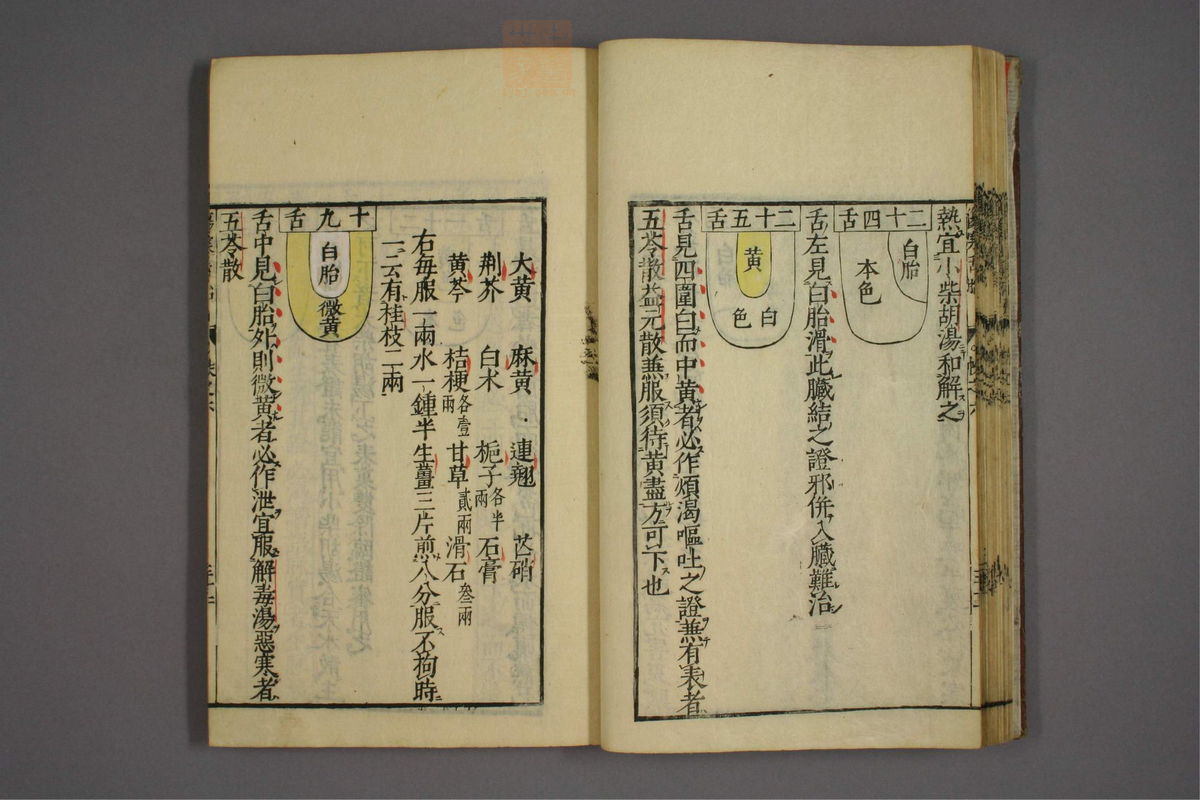 熱宜小柴胡湯和解之
二十四舌
白胎
本色
舌左見白胎滑此臟結之證邪併入臟難治
二十五舌
黃
白色
舌見四圍白而中黃者必作煩渴嘔吐之證兼有表者
五苓散益元散兼服須待黃盡方可下也
大黃 麻黃 連翹 芒硝
荆芥 白术 梔子各半兩 石膏
黃芩 桔梗各壹兩 甘草貳兩 滑石叄兩
右每服一兩水一鍾半生薑三片煎八分服不拘時
一云有桂枝二兩
十九舌
白胎
微黃
舌中見白胎外則微黃者必作泄宜服解毒湯惡寒者
五苓散